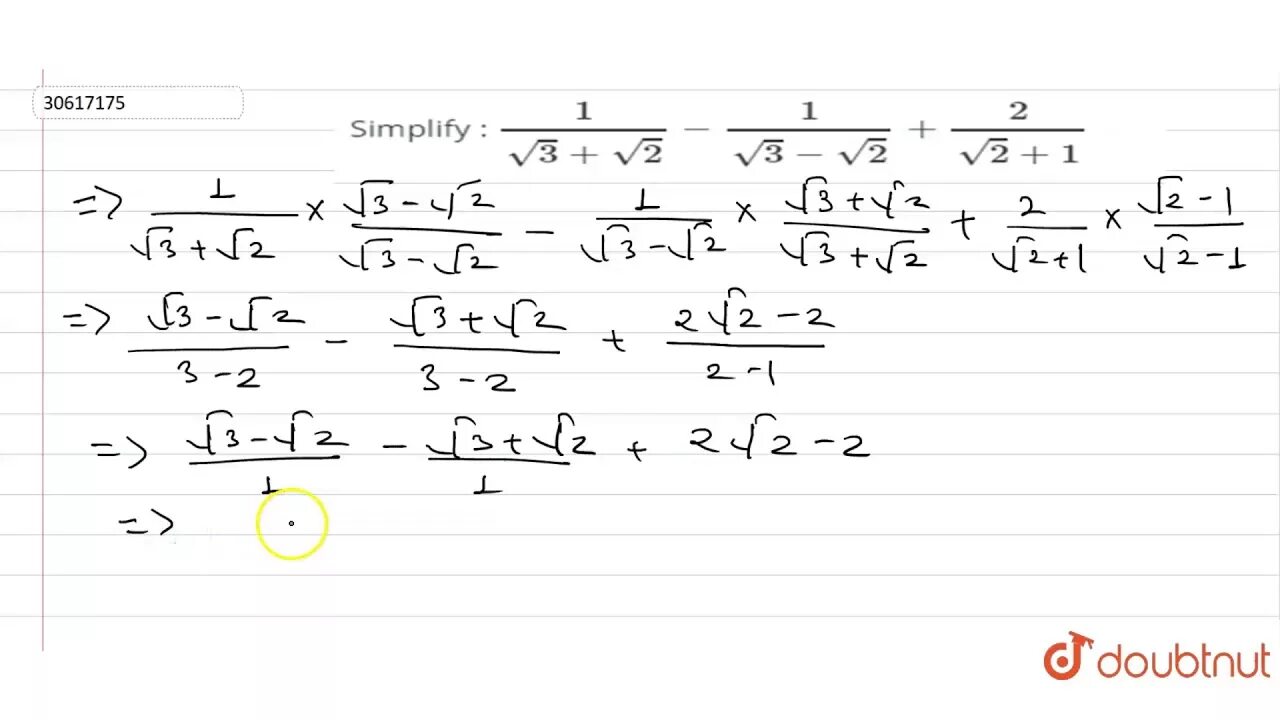 30617175
Simplify : 1/(√3 + √2) − 1/(√3 − √2) + 2/(√2 + 1)
=> 1/(√3 + √2) × (√3 − √2)/(√3 − √2) − 1/(√3 − √2) × (√3 + √2)/(√3 + √2) + 2/(√2 + 1) × (√2 − 1)/(√2 − 1)
=> (√3 − √2)/(3 − 2) − (√3 + √2)/(3 − 2) + (2√2 − 2)/(2 − 1)
=> (√3 − √2)/1 − (√3 + √2)/1 + 2√2 − 2
=>
doubtnut